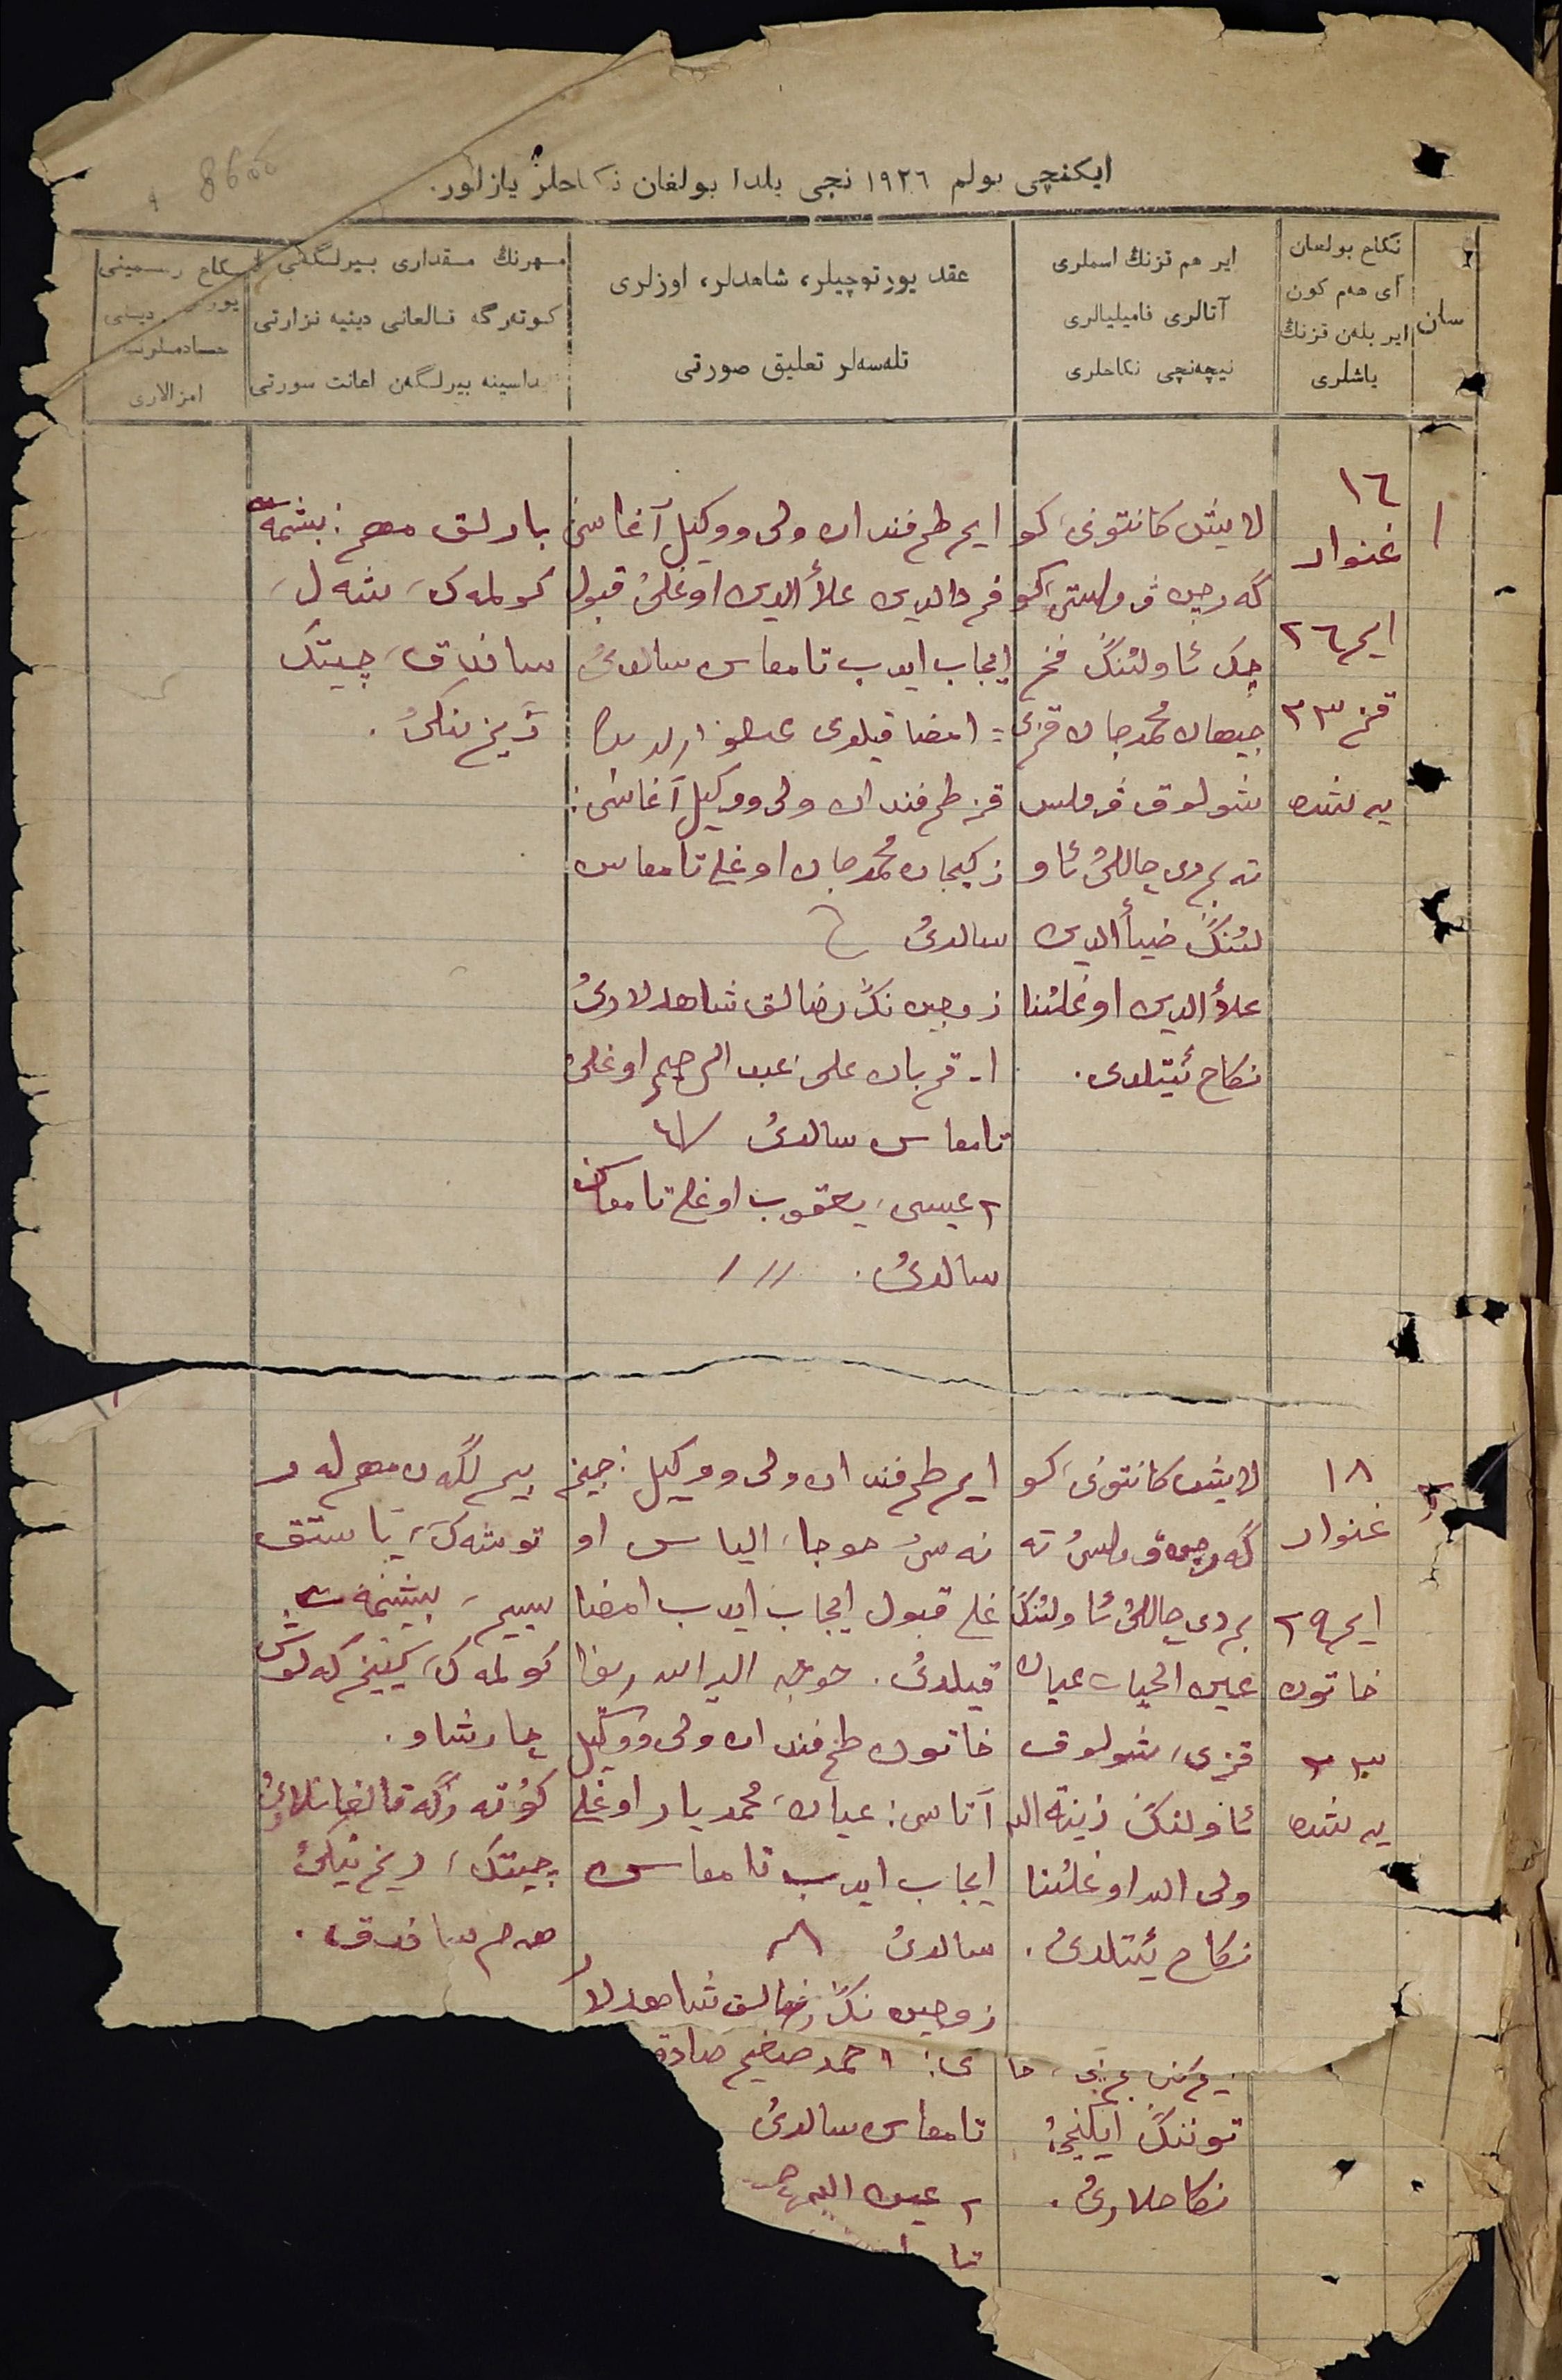 8600
ایکنچی بولم ١٩٢٦ نجی یلدا بولغان نکاحلر یازلور.
سان
نکاح بولعان
آی هەم کون
ایر بلەن قزنڭ
یاشلری
ایر هم قزنڭ اسملری
آتالری فامیلیالری
نیچەنچی نکاحلری
عقد یورتوچیلر، شاهدلر، اوزلری
تلەسەلر تعلیق صورتی
مهرنڭ مقداری بیرلگەنی
کوتەرگە قالعانی دینیە نزارتی
بیرلگەن اعانت سورتی
نکاح رسمینی
دینی
امزالاری
١
١٦
غنوار
ایر ٢٦
قز ٢٣
یەشدە
لایش کانتونی، کو
گەرچین ڤولستی، کو
چک ئاولننڭ فخر
جیهان محمدجان قزی
شولوق ڤولس
تەبردی چاللی ئاو
لننڭ ضیأالدین
علأالدین اوغلننا
نکاح ئیتلدی.
ایر طرفندان ولی ووکیل آغاسی
فخرالدین علأالدین اوغلی قبول
ایجاب ایدب تامعاس سالدی
امضا قیلوی
قز طرفندان ولی ووکیل آغاسی:
زکیجان محمدجان اوغلی تامعاس
سالدی
زوجین نڭ رضالق شاهدلاری
١ـ قربان علی، عبدالرحیم اوغلی
تامعاس سالدی
٢ عیسی، یعقوب اوغلی تامعاس
سالدی.
بارلق مهر: بیشمەت
کولمەک، شەل،
ساندق، چیتک
رَیزنکی.
٢
١٨
غنوار
ایر ٢٩
خاتون
٢٣
یەشدە
لایش کانتونی، کو
گەرچین ڤولسی تە
بردی چاللی ئاولننڭ
عین الحیات عیان
قزی، شولوق
ئاولننڭ زینة الله
ولی الله اوغلننا
نکاح ئیتلدی.
توننڭ ایکنچی
نکاحلاری.
ایر طرفندان ولی ووکیل: جیز
نەسی خوجا، الیاس او
غلی قبول ایجاب ایدب امضا
قیلدی.
خاتون طرفندان ولی ووکیل
آتاسی: عیان، محمدیار اوغلی
ایجاب ایدب تامعاس
سالدی
زوجین نڭ رضالق شاهدلا
ی: ١ احمد صغیر صادق
تامعاس سالدی
٢ عین
بیرلگەن مهرلەر
توشەک، یاستق
بیشمەت
کولمەک، کییز کەلوش
چارشاو.
کوتەرگە قالغانلاری
چیتک، ریزنکی
هەم ساندق.